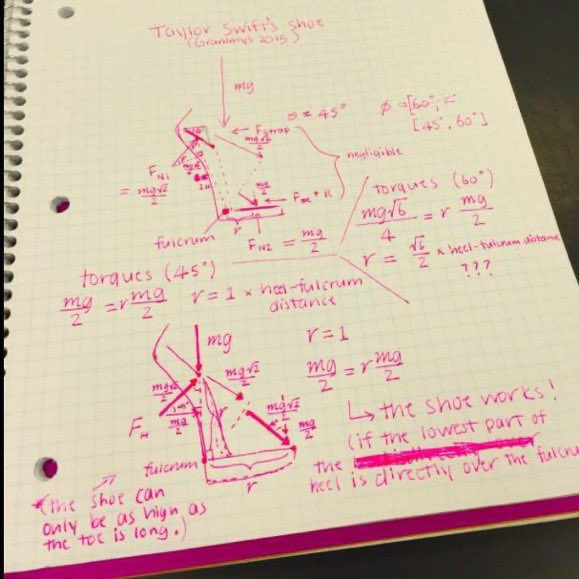 Taylor Swift's Shoe
(Grammys 2015)
mg
θ = 45°
[45°, 60°]
F strap
mg√2
2
negligible
F N1
= mg√2
2
mg
2
fulcrum
r
F N2 = mg
2
torques (60°)
mg√6
4
= r mg
2
r = √6
2
× heel-fulcrum distance
???
torques (45°)
mg
2
= r mg
2
r = 1 × heel-fulcrum
distance
mg
r = 1
mg√2
2
mg√2
2
mg
2
= r mg
2
mg√2
2
mg
2
mg
2
↳ the shoe works!
(if the lowest part of
the
heel is directly over the fulcru
fulcrum
r
r
*(the shoe can
only be as high as
the toe is long.)